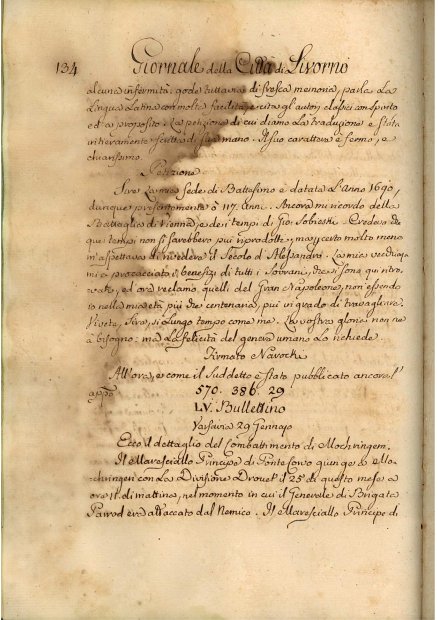 134 Giornale della Città di Livorno
alcuna infermità: gode tuttavia di fresca memoria, parla La
Lingua Latina con molta facilità, e cita gl'autori classici con spirito
ed a proposito. La petizione di cui diamo La traduzione è stata
intieramente scritta di sua mano. Il suo carattere è fermo, e
chiarissimo.
Petizione
Sire. La mia fede di Battesimo è datata L'anno 1690,
dunque presentemente ò 117 anni. Ancora mi ricordo della
Battaglia di Vienna, e dei tempi di Gio: Sobieski. Credeva che
quei tempi non si sarebbero più riprodotti, ma certo molto meno
m'aspettava di rivedere il Secolo d'Alessandro. La mia vecchiaja
mi à procacciato i benefizi di tutti i Sovrani, che si sono qui
vate, ed ora reclamo quelli del Gran Napoleone, non essendo
io nella mia età più che centenaria, più in grado di travagliare.
Vivete, Sire, sì Lungo tempo come me. La vostra gloria non ne
à bisogno: ma La felicità del genere umano Lo richiede.
Firmato Narocki
All'ora, e come il Suddetto è stato pubblicato ancora. l'
appo
570. 386. 29
LV. Bullettino
Varsavia 29 Gennajo
Ecco il dettaglio del Combattimento di Mochringen.
Il Maresciallo Principe di Ponte Corvo giunge a Mo-
chringen con La Divisione Drouet il 25 di questo mese a
ore 11. di mattina, nel momento in cui il Generale di Brigata
Pactod era attaccato dal Nemico. Il Maresciallo Principe di